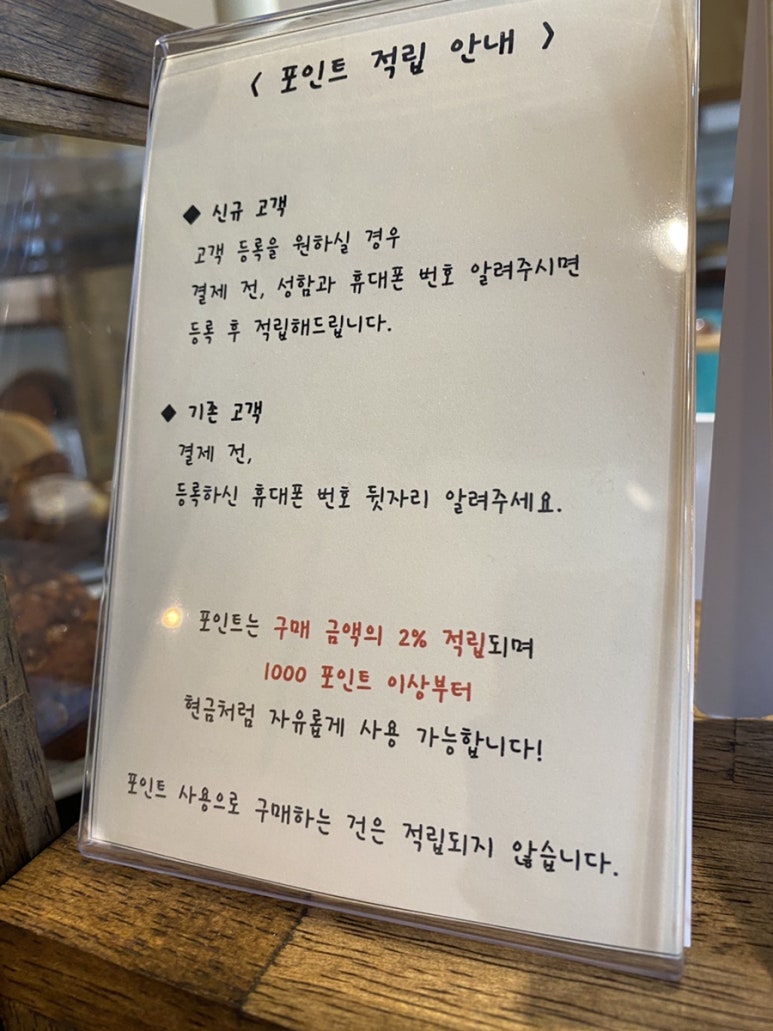 < 포인트 적립 안내 >
◆ 신규 고객
고객 등록을 원하실 경우
결제 전, 성함과 휴대폰 번호 알려주시면
등록 후 적립해드립니다.
◆ 기존 고객
결제 전,
등록하신 휴대폰 번호 뒷자리 알려주세요.
포인트는 구매 금액의 2% 적립되며
1000 포인트 이상부터
현금처럼 자유롭게 사용 가능합니다!
포인트 사용으로 구매하는 건은 적립되지 않습니다.